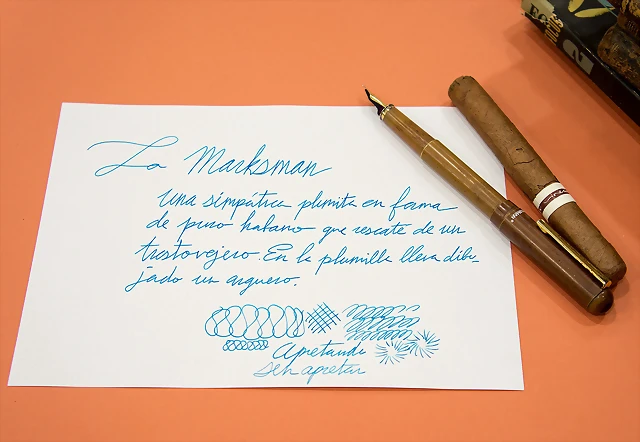 La Marksman
Una simpática plumita en forma
de puro habano que rescate de un
trastovejero. En la plumilla lleva dibu-
jado un arquero.
Apretando
sin apretar